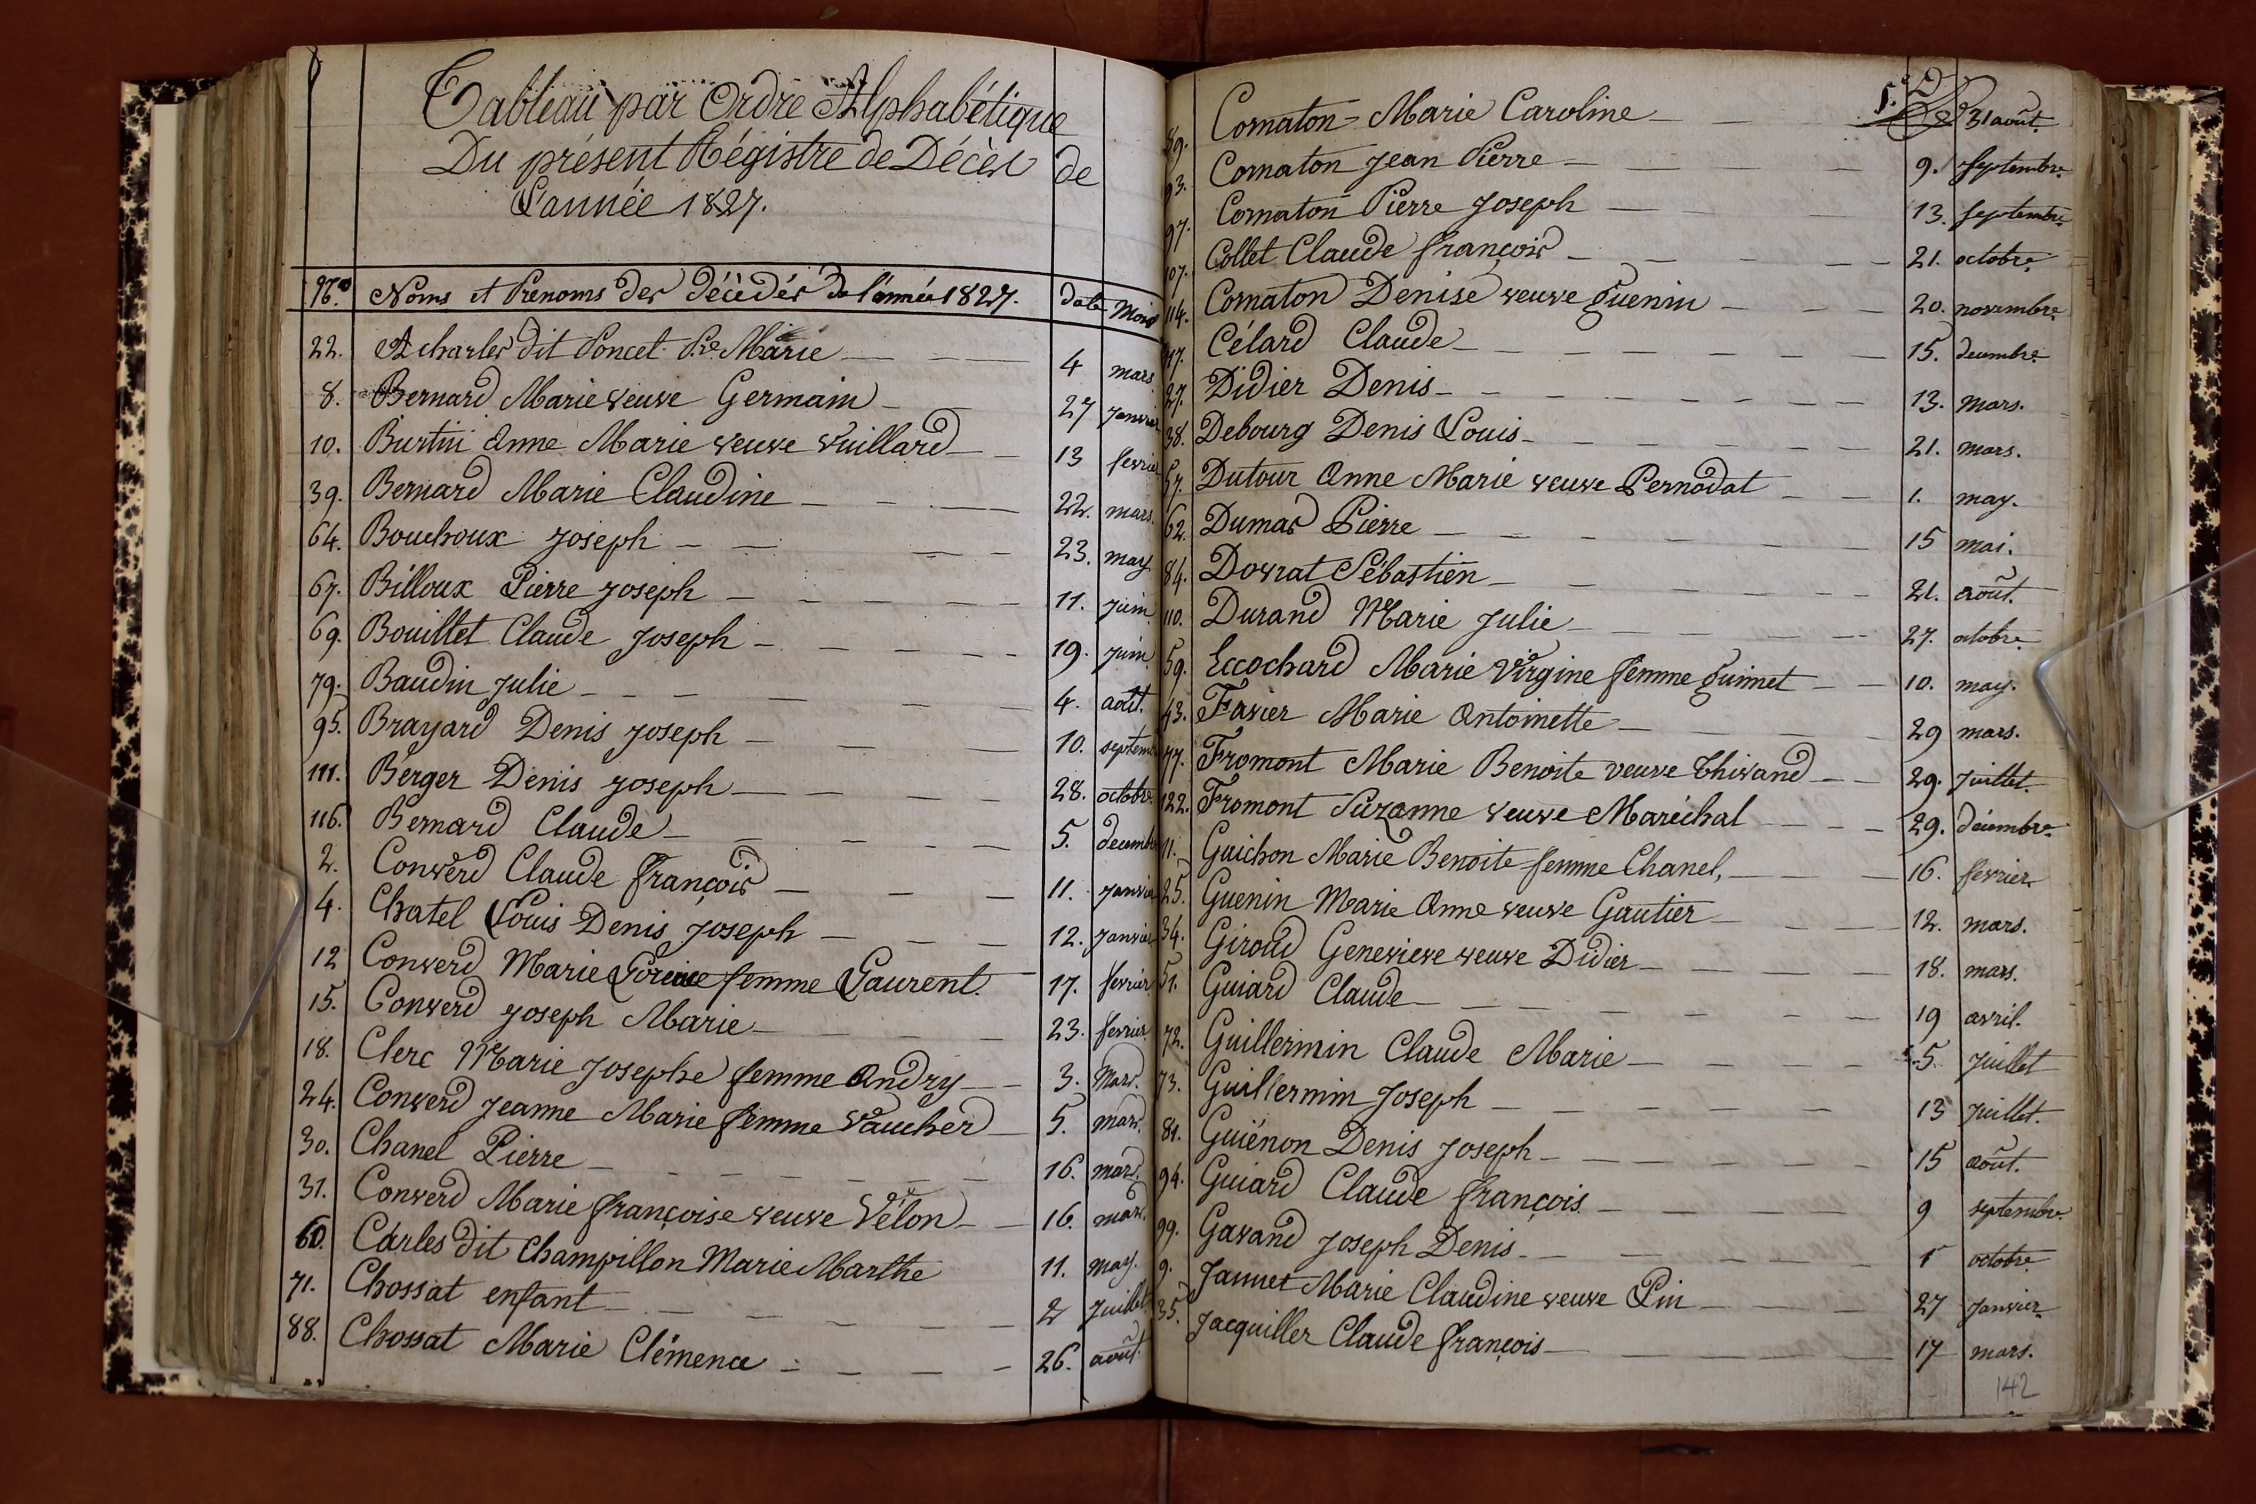 Tableau par Ordre Alphabétique
Du présent Régistre de Décès de
L'année 1827.
N.os Noms et Prenoms des décédés de l'année 1827. date Mois
22. Acharles dit Poncet P.re Marie 4 mars.
8. Bernard Marie veuve Germain 27 janvier
10. Burtin Anne Marie veuve Vuillard 13 fevrier
39. Bernard Marie Claudine 22. mars.
64. Bouchoux Joseph 23. may
67. Billoux Pierre Joseph 11. juin
69. Bouillet Claude Joseph 19. juin
79. Baudin Julie 4. août.
95. Brayard Denis Joseph 10. septemb
111. Berger Denis Joseph 28. octobre
116. Bernard Claude 5. decembre
2. Converd Claude François 11. janvier
4. Chatel Louis Denis Joseph 12. janvier
12 Converd Marie femme Laurent. 17. fevrier
15. Converd Joseph Marie 23. fevrier
18. Clerc Marie Josephe femme Andry 3. Mars.
24. Converd Jeanne Marie femme Vaucher 5. mars.
30. Chanel Pierre 16. mars.
31. Converd Marie Françoise veuve Vélon 16. mars.
60. Carles dit Champillon Marie Marthe 11. may.
71. Chossat enfant 2 juillet
88. Chossat Marie Clémence 26. août.
89. Cornaton Marie Caroline 31 août.
93. Cornaton Jean Pierre 9. septembre
97. Cornaton Pierre Joseph 13. septembre
107. Collet Claude François 21. octobre
114. Cornaton Denise veuve Guenin 20. novembre
117. Célard Claude 15. decembre
27. Didier Denis 13. Mars.
38. Debourg Denis Louis 21. mars.
57. Dutour Anne Marie veuve Pernodat 1. may.
62. Dumas Pierre 15 mai.
84. Dovrat Sébastien 21. août.
110. Durand Marie Julie 27. octobre
59. Eccochard Marie Virgine femme Guimet 10. may.
43. Favier Marie Antoinette 29 mars.
77. Fromont Marie Benoite veuve Thivand 29. juillet.
122. Fromont Suzanne veuve Maréchal 29. décembre
11. Guichon Marie Benoite femme Chanel, 16. février
25. Guenin Marie Anne veuve Gautier 12. mars.
34. Giroud Genevieve veuve Didier 18. mars.
51. Guiard Claude 19 avril.
72. Guillermin Claude Marie 5. juillet
73. Guillermin Joseph 13 juillet.
81. Guiénon Denis Joseph 15 août.
94. Guiard Claude François. 9 septembre
99. Gavand Joseph Denis 1 octobre
9. Jannet Marie Claudine veuve Pin 27 janvier
35. Jacquiller Claude François 17 mars.
142